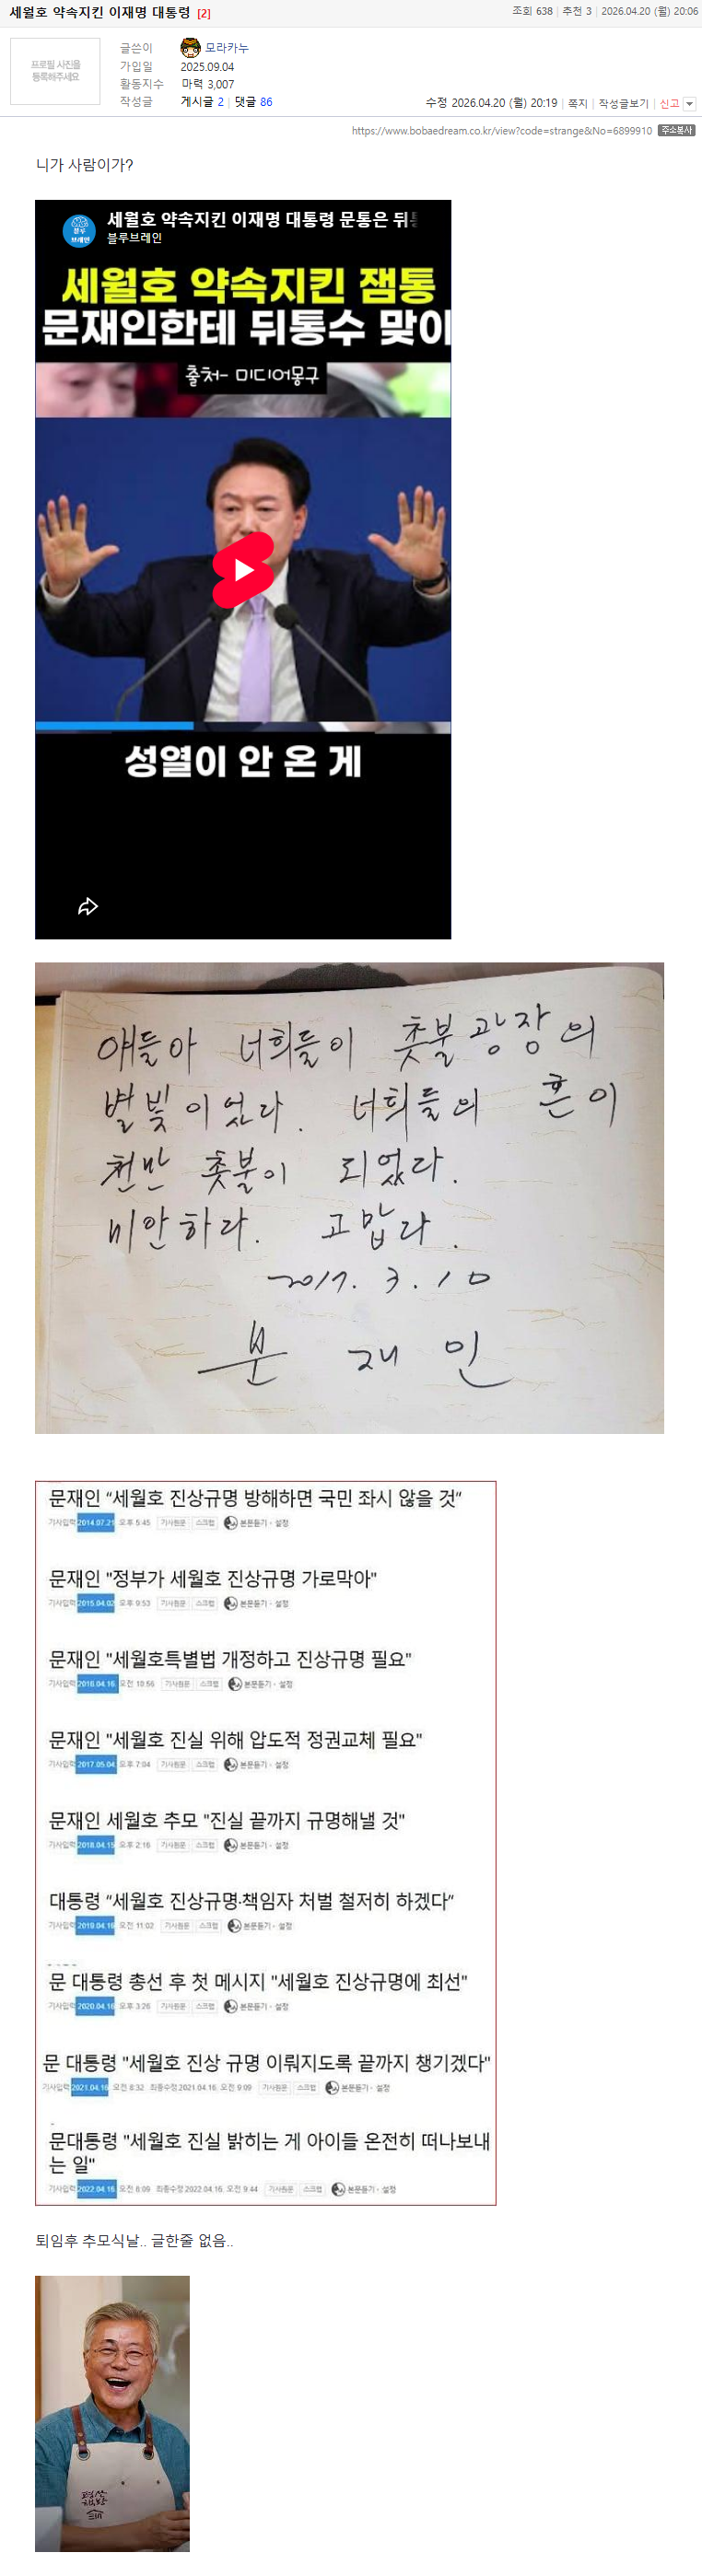 세월호 약속지킨 이재명 대통령 [2]
조회 638 | 추천 3 | 2026.04.20 (월) 20:06
프로필 사진을
등록해주세요
글쓴이 모라카누
가입일 2025.09.04
활동지수 마력 3,007
작성글 게시글 2 | 댓글 86
수정 2026.04.20 (월) 20:19 | 쪽지 | 작성글보기 | 신고
https://www.bobaedream.co.kr/view?code=strange&No=6899910 주소복사
니가 사람이가?
블루
브레인
세월호 약속지킨 이재명 대통령 문통은 뒤통
블루브레인
세월호 약속지킨 잼통
문재인한테 뒤통수 맞이
출처- 미디어몽구
성열이 안 온 게
얘들아 너희들이 촛불광장의
별빛이었다. 너희들의 혼이
천만 촛불이 되었다.
미안하다. 고맙다.
2017. 3. 10
문 재 인
문재인 “세월호 진상규명 방해하면 국민 좌시 않을 것”
기사입력 2014.07.21 오후 5:45 기사원문 스크랩 본문듣기 · 설정
문재인 "정부가 세월호 진상규명 가로막아"
기사입력 2015.04.02 오후 9:53 기사원문 스크랩 본문듣기 · 설정
문재인 "세월호특별법 개정하고 진상규명 필요"
기사입력 2016.04.16. 오전 10:56 기사원문 스크랩 본문듣기 · 설정
문재인 "세월호 진실 위해 압도적 정권교체 필요"
기사입력 2017.05.04. 오후 7:04 기사원문 스크랩 본문듣기 · 설정
문재인 세월호 추모 "진실 끝까지 규명해낼 것"
기사입력 2018.04.15 오후 2:16 기사원문 스크랩 본문듣기 · 설정
대통령 “세월호 진상규명·책임자 처벌 철저히 하겠다”
기사입력 2019.04.16 오전 11:02 기사원문 스크랩 본문듣기 · 설정
문 대통령 총선 후 첫 메시지 "세월호 진상규명에 최선"
기사입력 2020.04.16 오후 3:26 기사원문 스크랩 본문듣기 · 설정
문 대통령 "세월호 진상 규명 이뤄지도록 끝까지 챙기겠다"
기사입력 2021.04.16 오전 8:32 최종수정 2021.04.16. 오전 9:09 기사원문 스크랩 본문듣기 · 설정
문대통령 "세월호 진실 밝히는 게 아이들 온전히 떠나보내
는 일"
기사입력 2022.04.16. 오전 8:09 최종수정 2022.04.16. 오전 9:44 기사원문 스크랩 본문듣기 · 설정
퇴임후 추모식날.. 글한줄 없음..
평산
책방